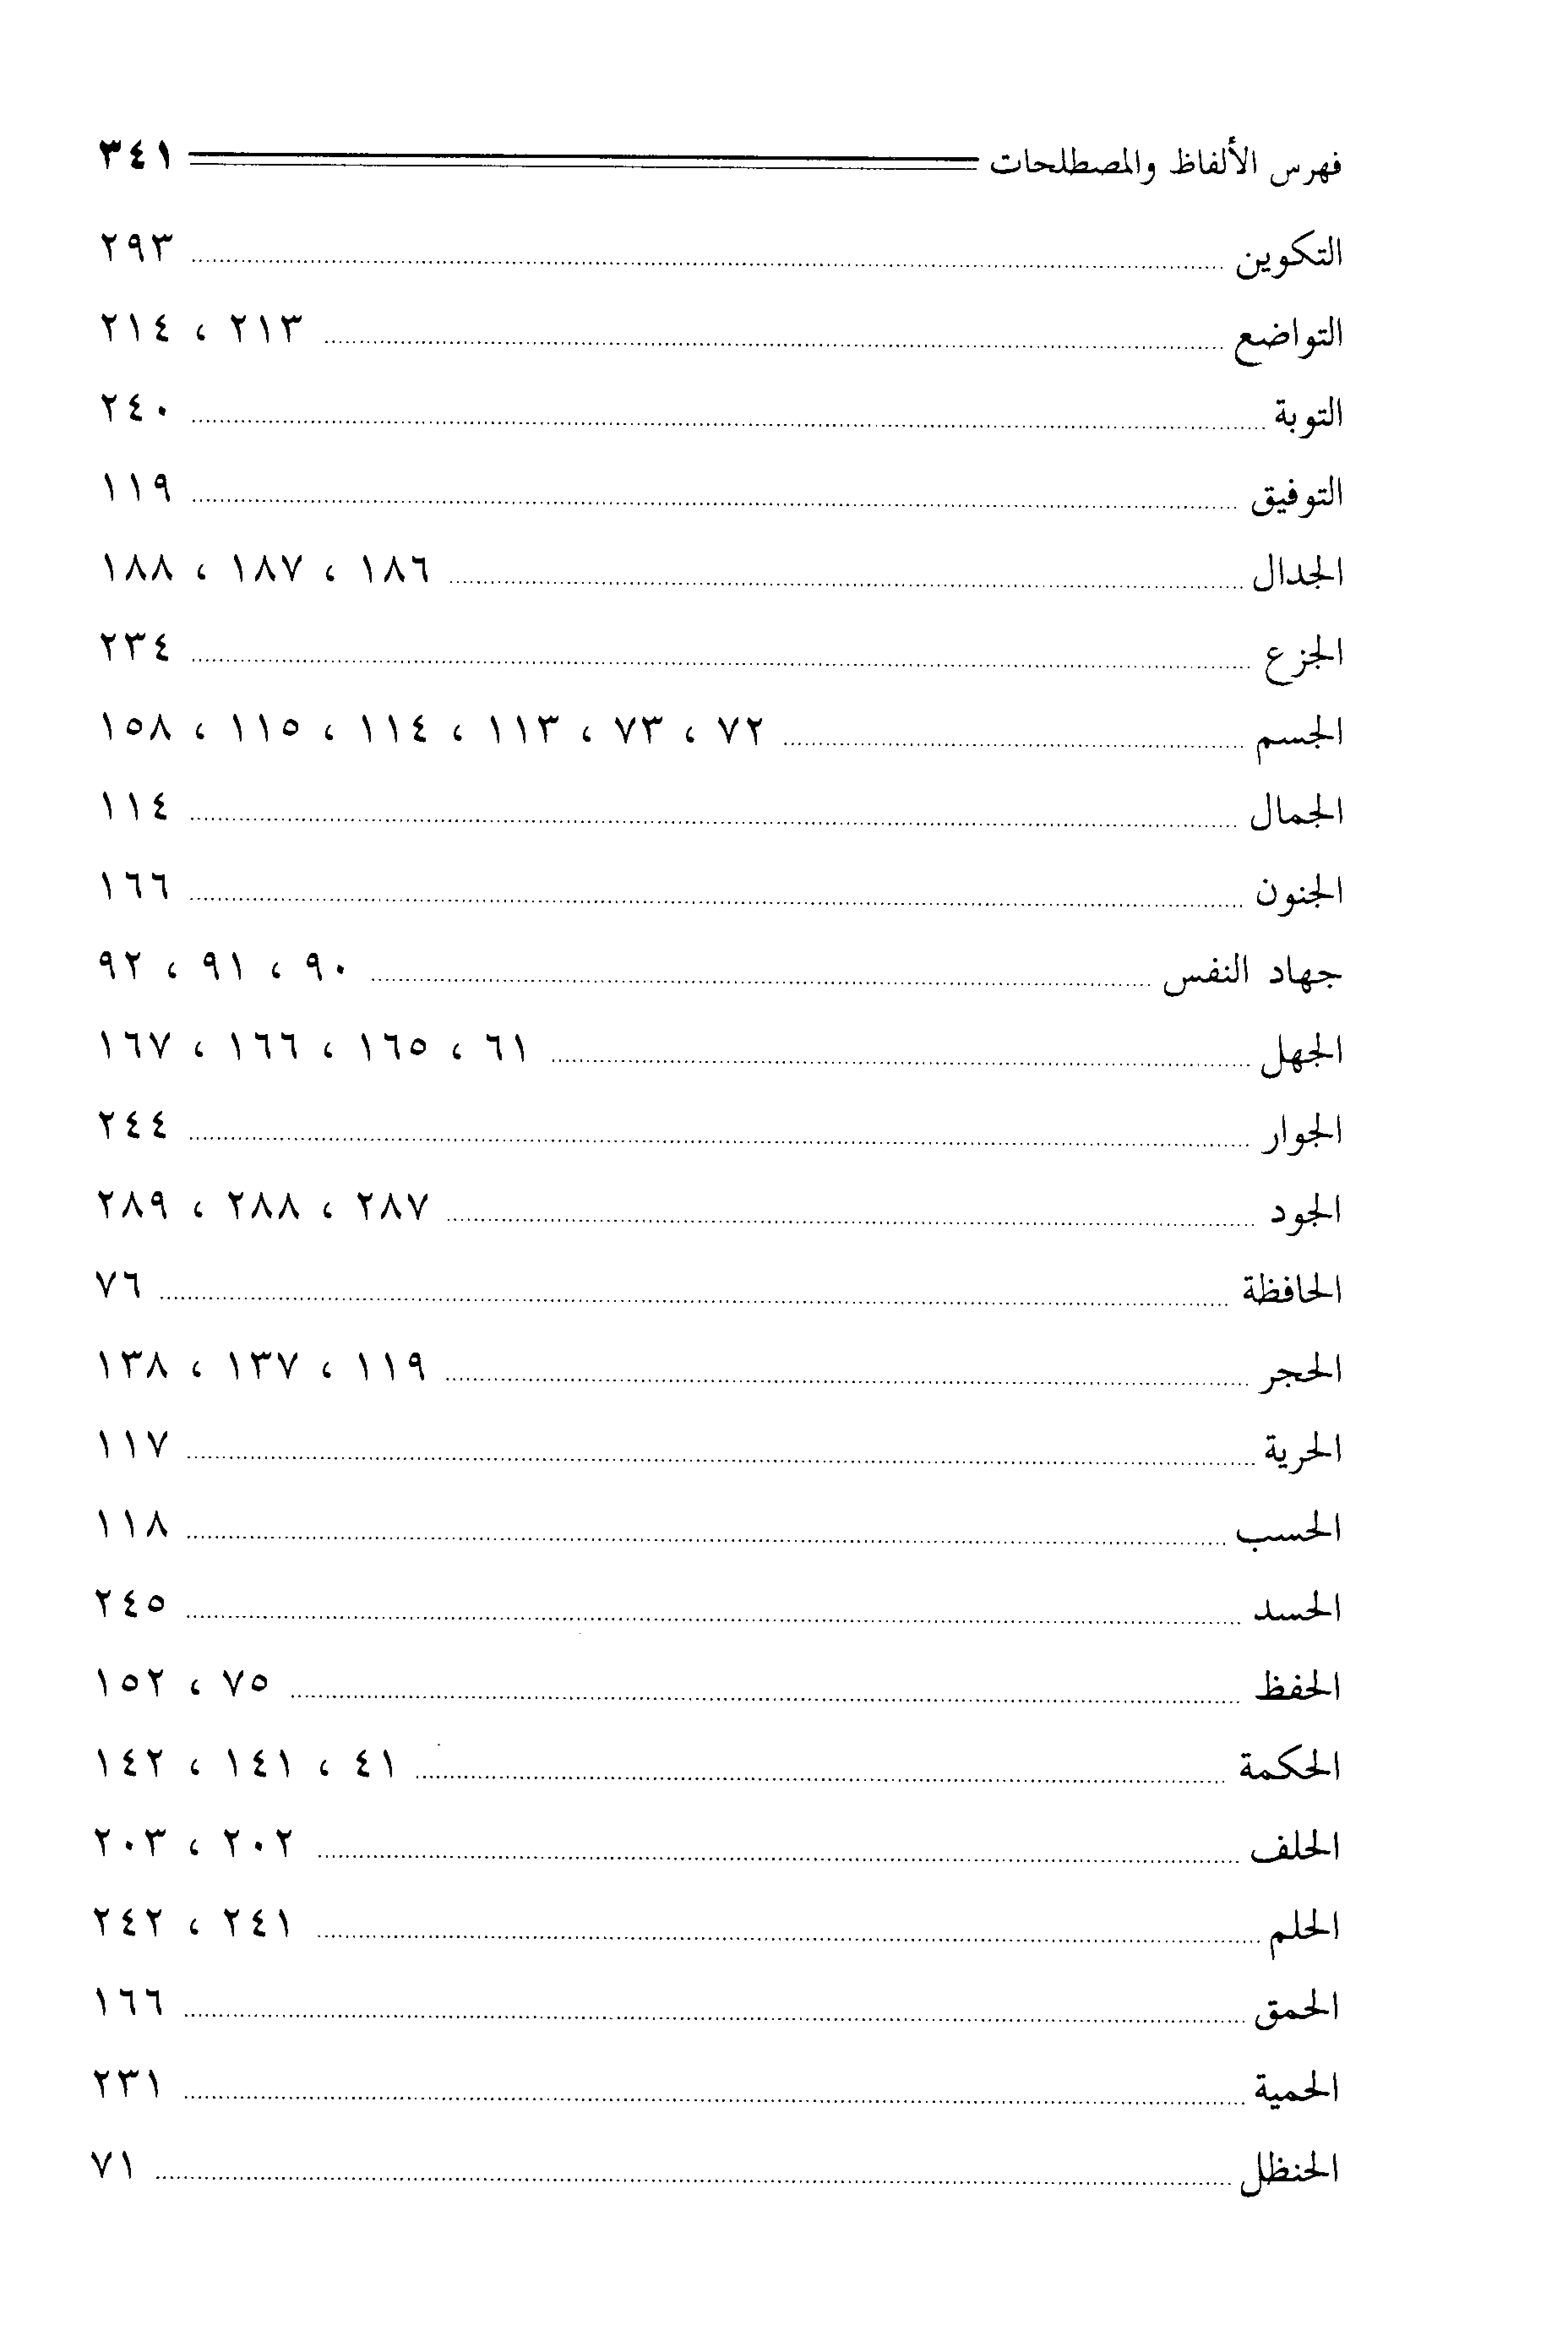 فهرس الألفاظ والمصطلحات ٣٤١
التكوين ٢٩٣
التواضع ٢١٣ ، ٢١٤
التوبة ٢٤٠
التوفيق ١١٩
الجدال ١٨٦ ، ١٨٧ ، ١٨٨
الجزع ٢٣٤
الجسم ٧٢ ، ٧٣ ، ١١٣ ، ١١٤ ، ١١٥ ، ١٥٨
الجمال ١١٤
الجنون ١٦٦
جهاد النفس ٩٠ ، ٩١ ، ٩٢
الجهل ٦١ ، ١٦٥ ، ١٦٦ ، ١٦٧
الجوار ٢٤٤
الجود ٢٨٧ ، ٢٨٨ ، ٢٨٩
الحافظة ٧٦
الحجر ١١٩ ، ١٣٧ ، ١٣٨
الحرية ١١٧
الحسب ١١٨
الحسد ٢٤٥
الحفظ ٧٥ ، ١٥٢
الحكمة ٤١ ، ١٤١ ، ١٤٢
الحلف ٢٠٢ ، ٢٠٣
الحلم ٢٤١ ، ٢٤٢
الحمق ١٦٦
الحمية ٢٣١
الحنظل ٧١